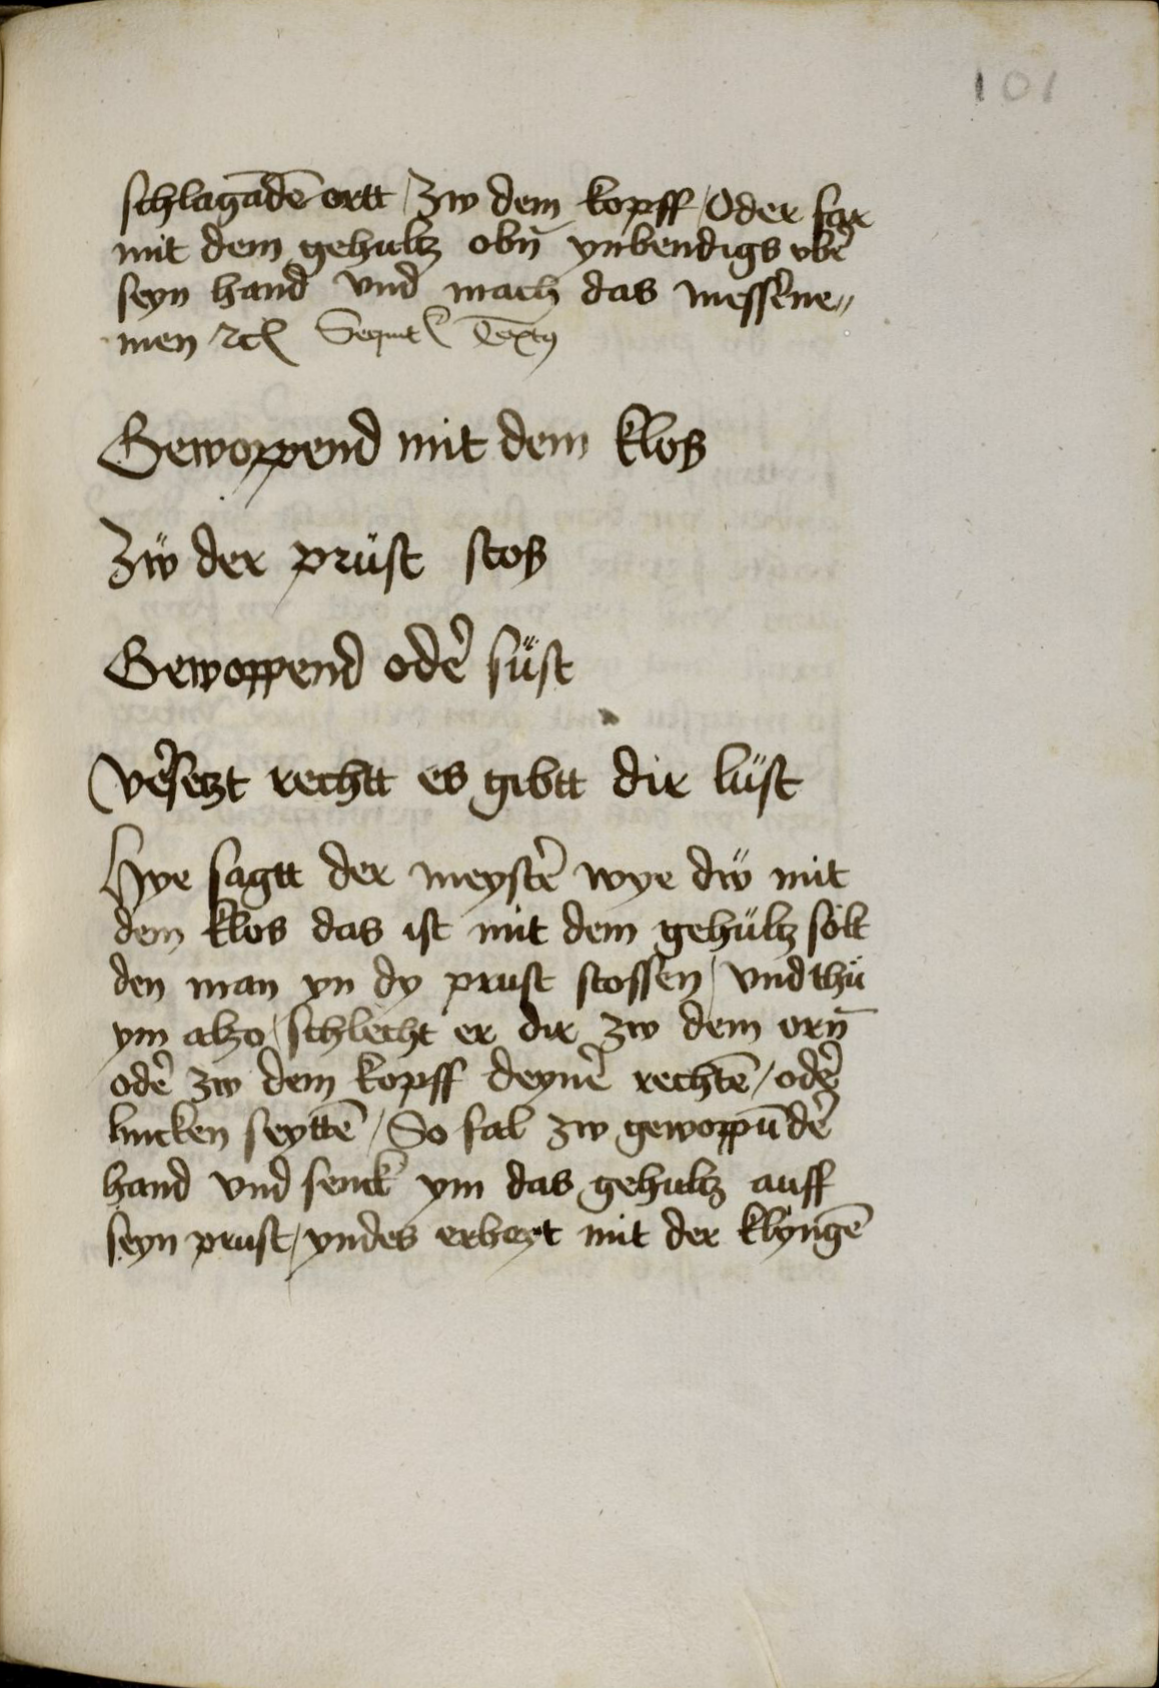 101
schlagādē ortt / Zw dem kopff / Oder far
mit dem gehultz obn̄ ynbendigs vbe᷑
seyn hand vnd mach das messe᷑ne〃
men ⁊cꝭ Sequit᷑ Textꝰ
Gewoppend mit dem klos
Zẅ der prüst stos
Gewoppend ode᷑ süst
Ve᷑setzt rechtt es gibtt dir lüst
Hye sagtt der meyste᷑ wye dẅ mit
dem klos das ist mit dem gehültz solt
den man yn dy prust stossen / vnd thü
ym alzo / schlecht er dir zw dem orn̄
ode᷑ zw dem kopff deyne᷑ rechtē / ode᷑
lincken seyttē / So fal zw gewoppūde᷑
hand vnd senck ym das gehultz auff
seyn prust / yndes erbeyt mit der klyngē